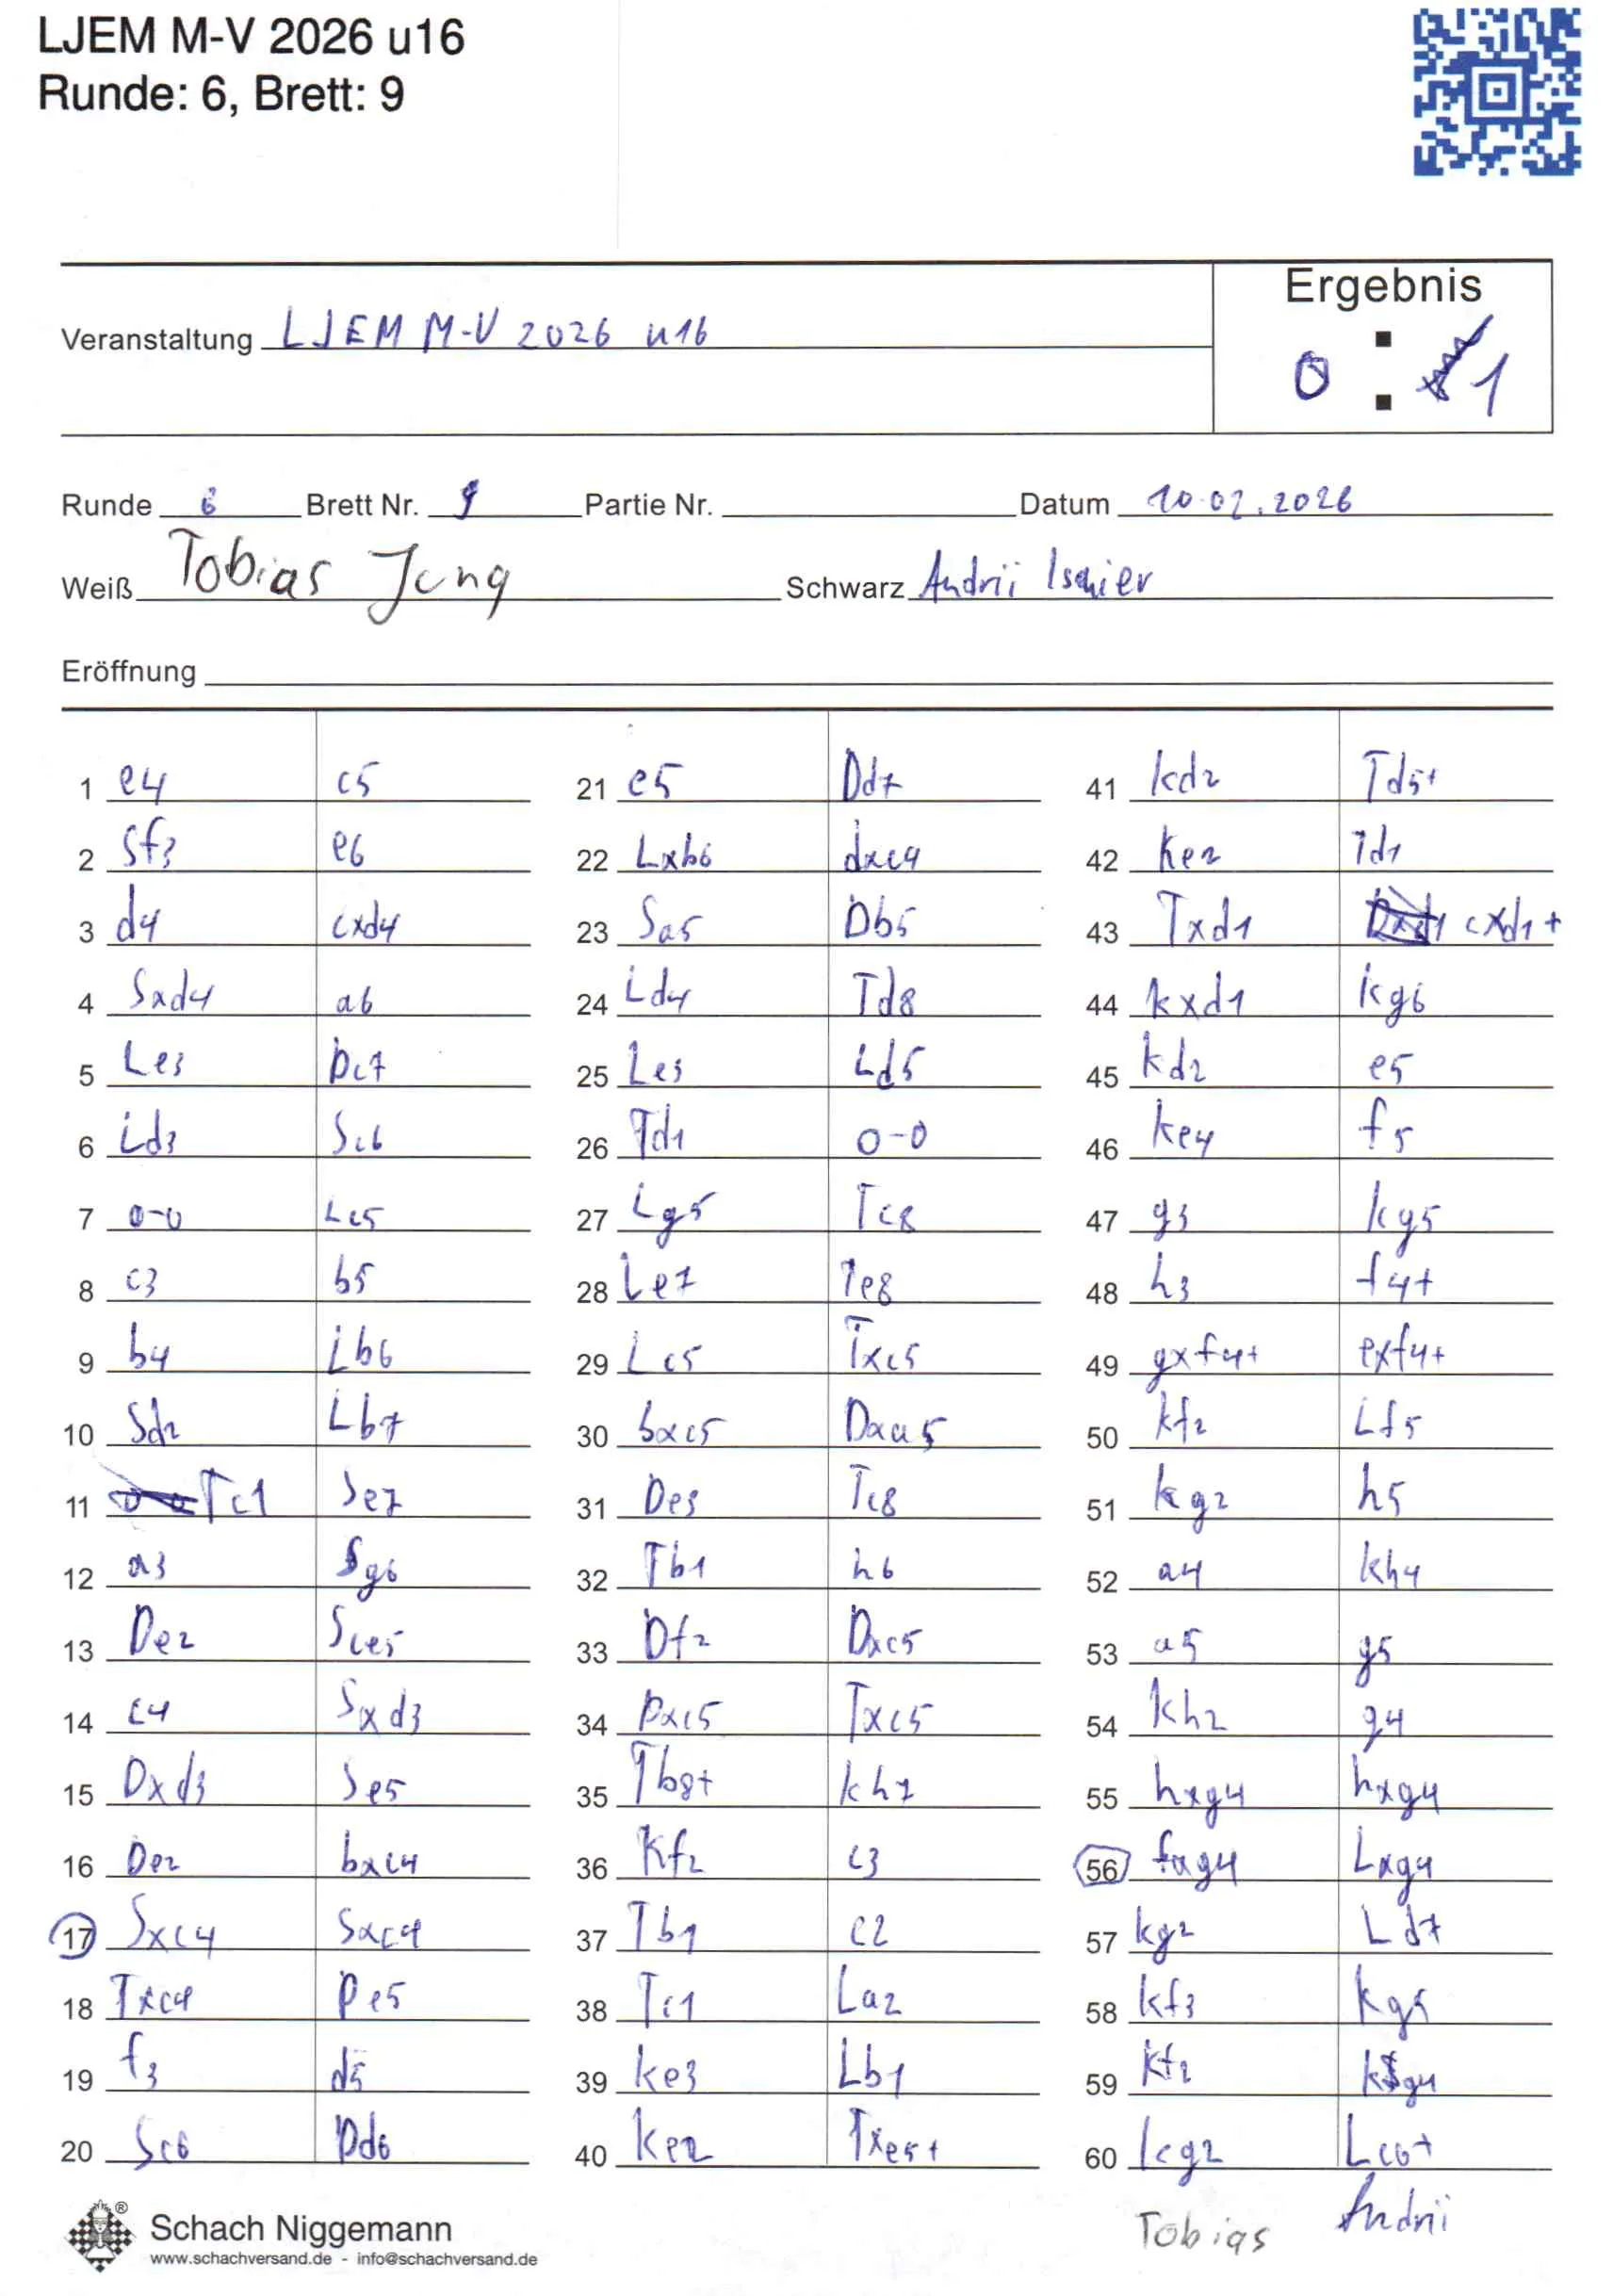 LJEM M-V 2026 u16
Runde: 6, Brett: 9
Ergebnis
Veranstaltung LJEM M-V 2026 u16
0 : 1
Runde 6 Brett Nr. 9 Partie Nr. Datum 10.02.2026
Weiß Tobias Jung Schwarz Andrii
Eröffnung
1 e4 c5 21 e5 Dd7 41 kd2 Td5+
2 Sf3 e6 22 Lxb6 dxc4 42 Ke2 Td1
3 d4 cxd4 23 Sa5 Db5 43 Txd1 cxd1+
4 Sxd4 a6 24 Ld4 Td8 44 kxd1 kg6
5 Le3 Dc7 25 Le3 Ld5 45 kd2 e5
6 Ld3 Sc6 26 Td1 0-0 46 ke4 f5
7 0-0 Lc5 27 Lg5 Tc8 47 g3 kg5
8 c3 b5 28 Le7 Te8 48 h3 f4+
9 b4 Lb6 29 Lc5 Txc5 49 gxf4+ exf4+
10 Sd2 Lb7 30 bxc5 Dxa5 50 kf2 Lf5
11 Tc1 Se7 31 De3 Tc8 51 kg2 h5
12 a3 Sg6 32 Tb1 h6 52 a4 kh4
13 De2 Sce5 33 Df2 Dxc5 53 a5 g5
14 c4 Sxd3 34 Dxc5 Txc5 54 kh2 g4
15 Dxd3 Se5 35 Tb8+ kh7 55 hxg4 hxg4
16 De2 bxc4 36 Kf2 c3 56 fxg4 Lxg4
17 Sxc4 Sxc4 37 Tb1 c2 57 kg2 Ld7
18 Txc4 De5 38 Tc1 La2 58 kf3 Kg5
19 f3 d5 39 ke3 Lb1 59 kf2 kg4
20 Sc6 Dd6 40 ke2 Txe5+ 60 kg2 Lc6+
Tobias Andrii
®
Schach Niggemann
www.schachversand.de - info@schachversand.de